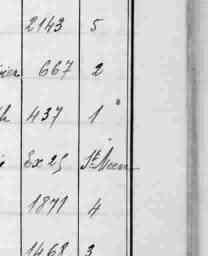 2143 5
667 2
437 1
Ex 25 St Meen
1871 4
1468 3